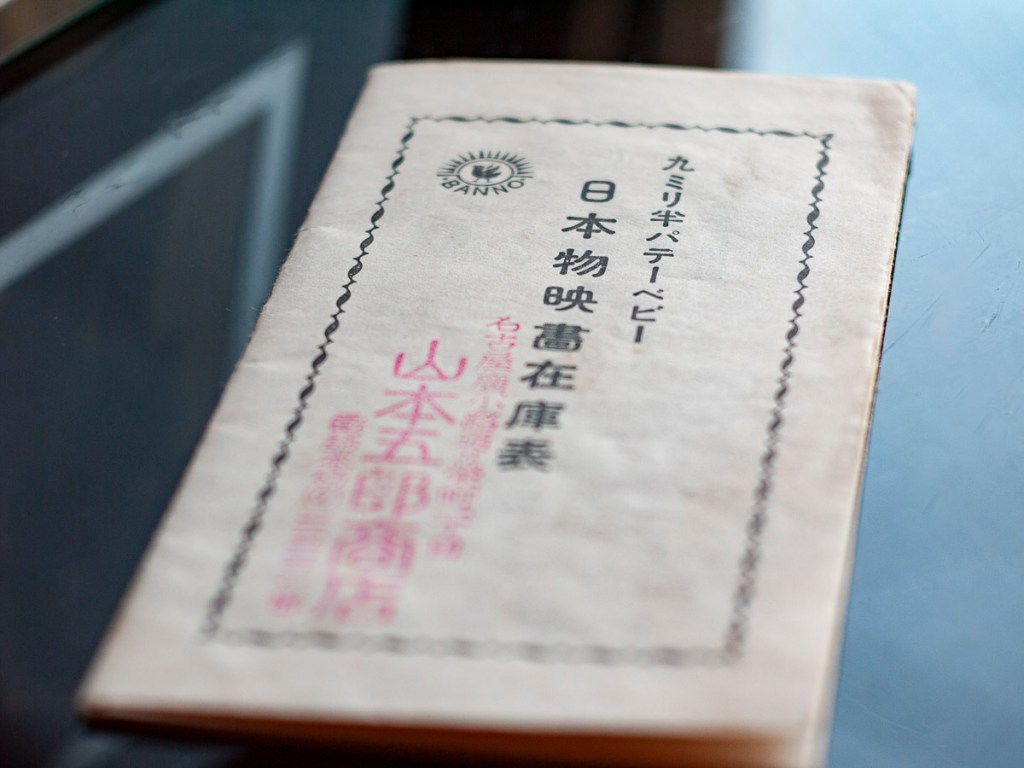 九ミリ半パテーベビー
日本物映畵在庫表
BANNO
名古屋
山本五郎商店